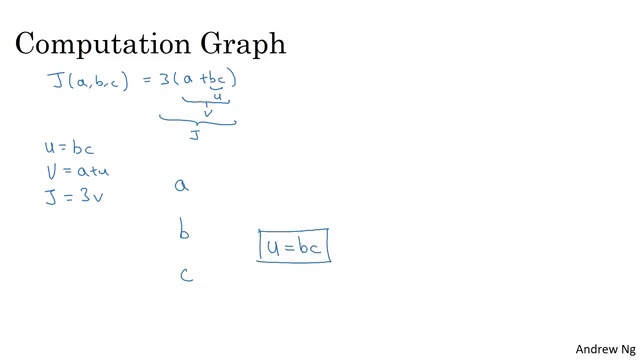 Computation Graph
J(a,b,c) = 3(a+bc)
u
v
J
u = bc
V = a+u
J = 3v
a
b
u = bc
c
Andrew Ng